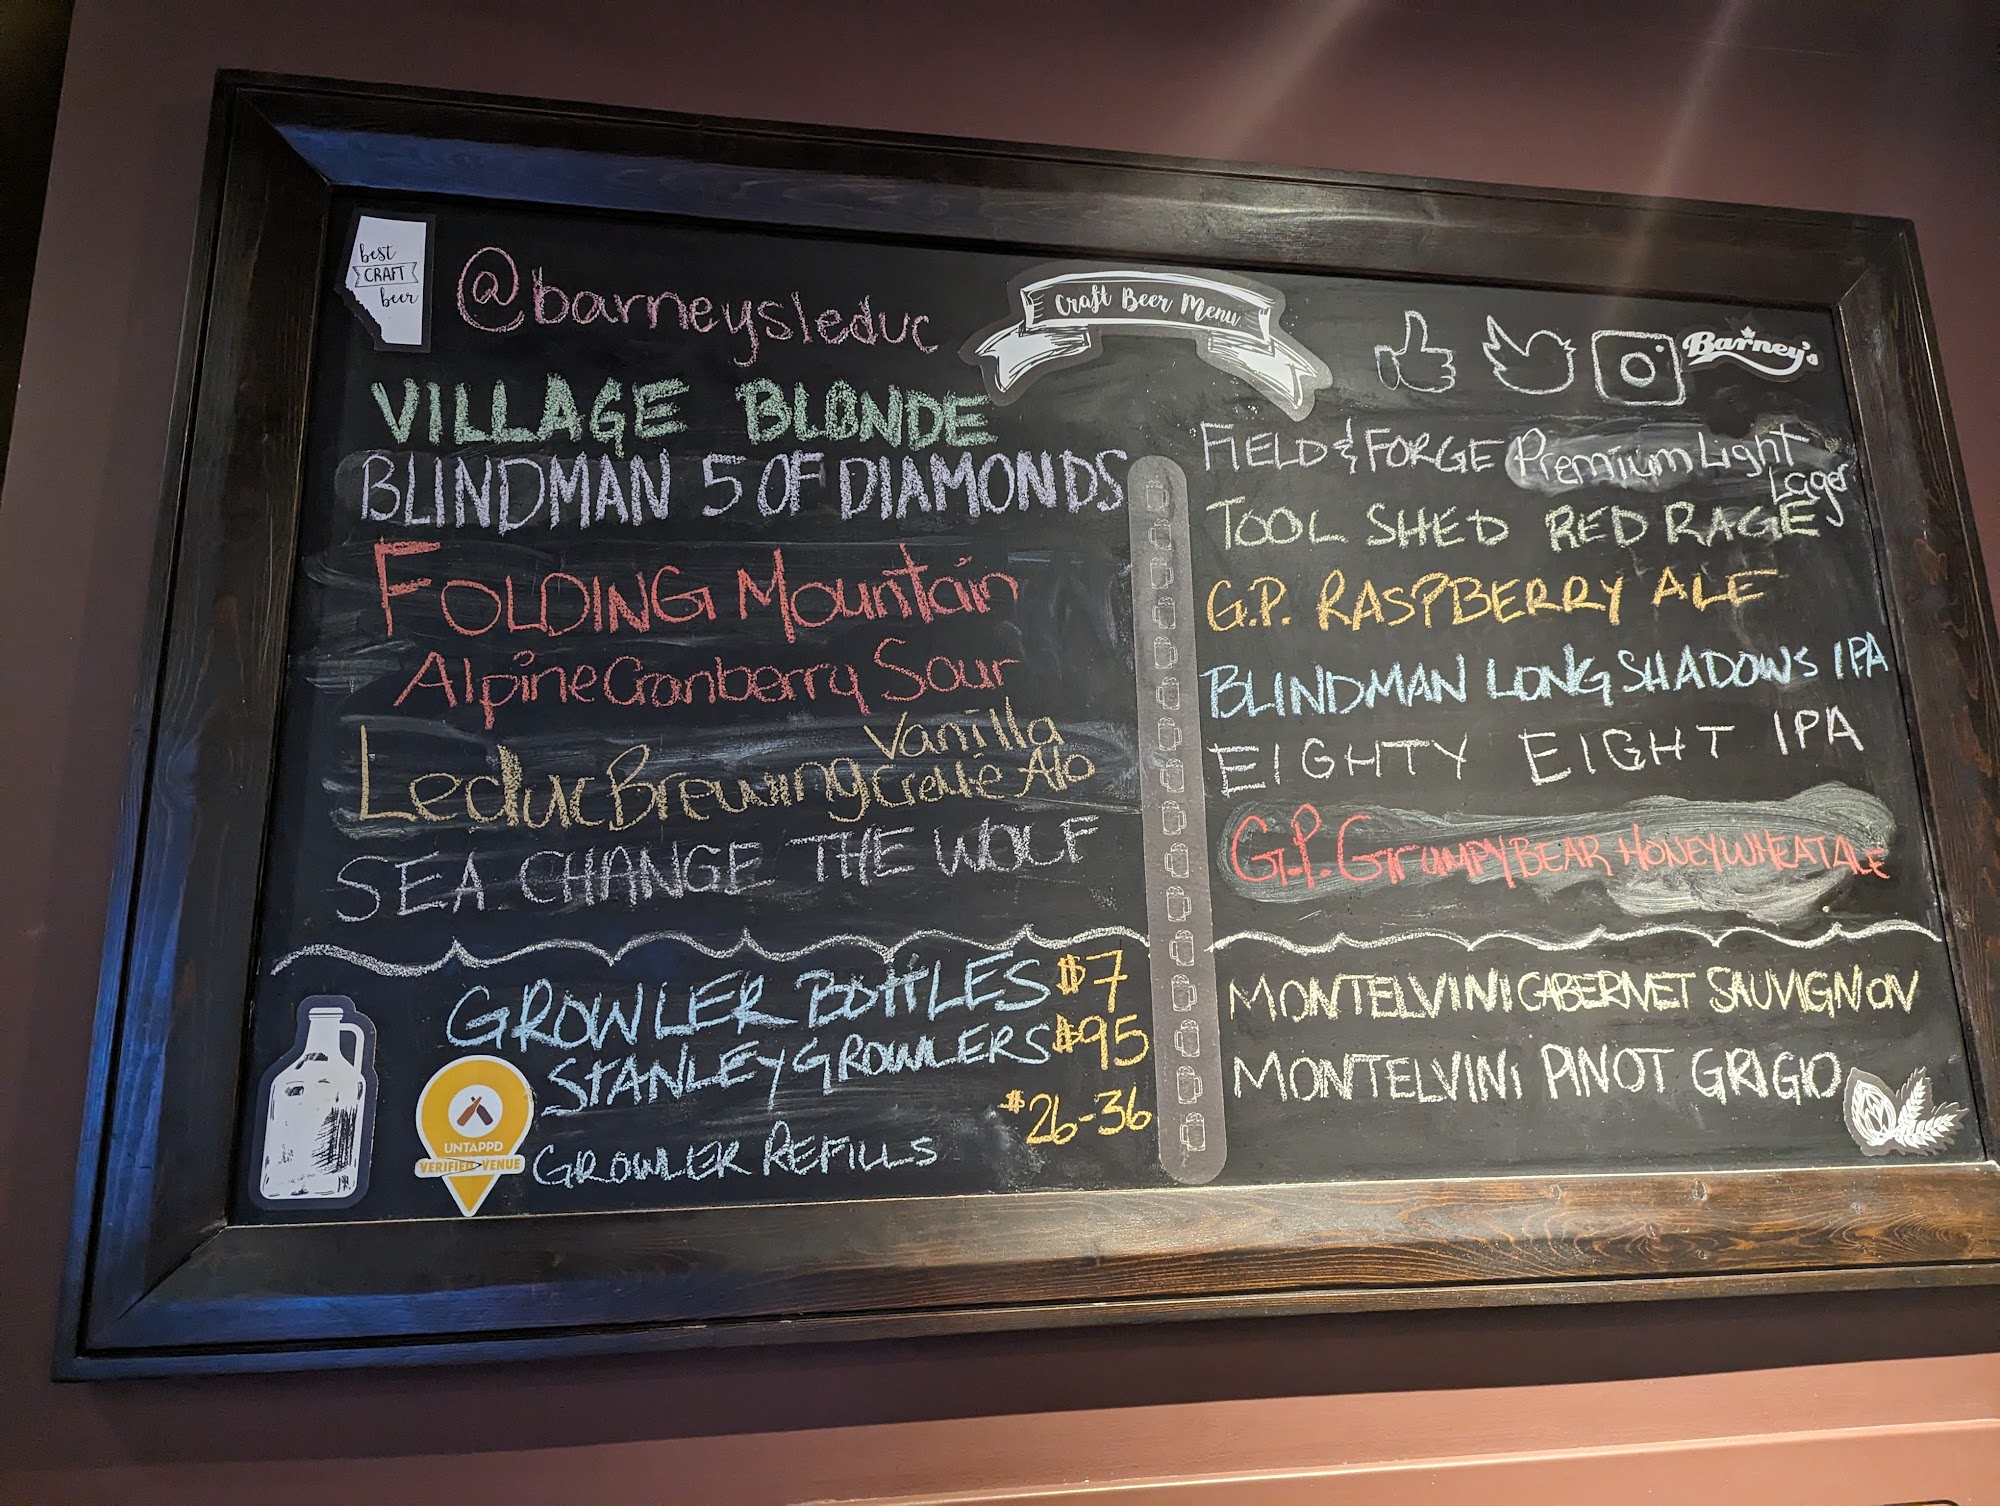 best
CRAFT
beer
@barneysleduc
Craft Beer Menu
Barney's
VILLAGE BLONDE
BLINDMAN 5 OF DIAMONDS
FOLDING Mountain
Alpine Cranberry Sour
Leduc Brewing Vanilla
SEA CHANGE THE WOLF
GROWLER BOTTLES $7
STANLEY GROWLERS $95
$26-36
GROWLER REFILLS
UNTAPPD
VERIFIED VENUE
FIELD & FORGE Premium Light
Lager
TOOL SHED RED RAGE
G.P. RASPBERRY ALE
BLINDMAN LONG SHADOWS IPA
EIGHTY EIGHT IPA
G.P. GrumpyBEAR HONEYWHEAT ALE
MONTELVINI CABERNET SAUVIGNON
MONTELVINI PINOT GRIGIO